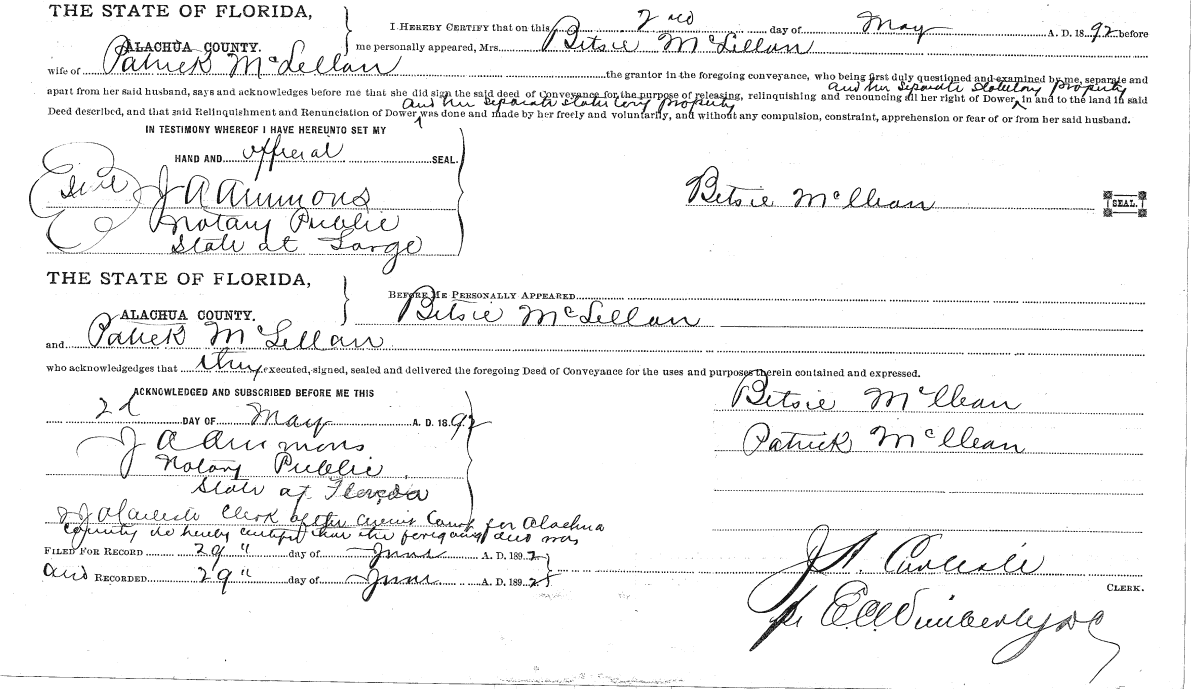 THE STATE OF FLORIDA,
ALACHUA COUNTY.
I HEREBY CERTIFY that on this 2nd day of May A. D. 1892 before
me personally appeared, Mrs. Betsie McLellan
wife of Patrick McLellan the grantor in the foregoing conveyance, who being first duly questioned and examined by me, separate and
and her separate statutory property
apart from her said husband, says and acknowledges before me that she did sign the said deed of Conveyance for the purpose of releasing, relinquishing and renouncing all her right of Dower, in and to the land in said
and her separate statutory property
Deed described, and that said Relinquishment and Renunciation of Dower was done and made by her freely and voluntarily, and without any compulsion, constraint, apprehension or fear of or from her said husband.
IN TESTIMONY WHEREOF I HAVE HEREUNTO SET MY
HAND AND official SEAL.
Seal
J A Ammons
Notary Public
State at Large
Betsie McClean
SEAL.
THE STATE OF FLORIDA,
ALACHUA COUNTY.
BEFORE ME PERSONALLY APPEARED
Betsie McLellan
and Patrick McLellan
who acknowledges that they executed, signed, sealed and delivered the foregoing Deed of Conveyance for the uses and purposes therein contained and expressed.
ACKNOWLEDGED AND SUBSCRIBED BEFORE ME THIS
2d DAY OF May A. D. 1892
J A Ammons
Notary Public
State of Florida
Betsie McClean
Patrick McClean
Clerk of the Circuit Court for Alachua
County do hereby certify that the foregoing deed was
FILED FOR RECORD 29" day of June A. D. 1892
and RECORDED 29" day of June A. D. 1892
J. A. Carlisle
CLERK.
pr E.A. Wimberly DC